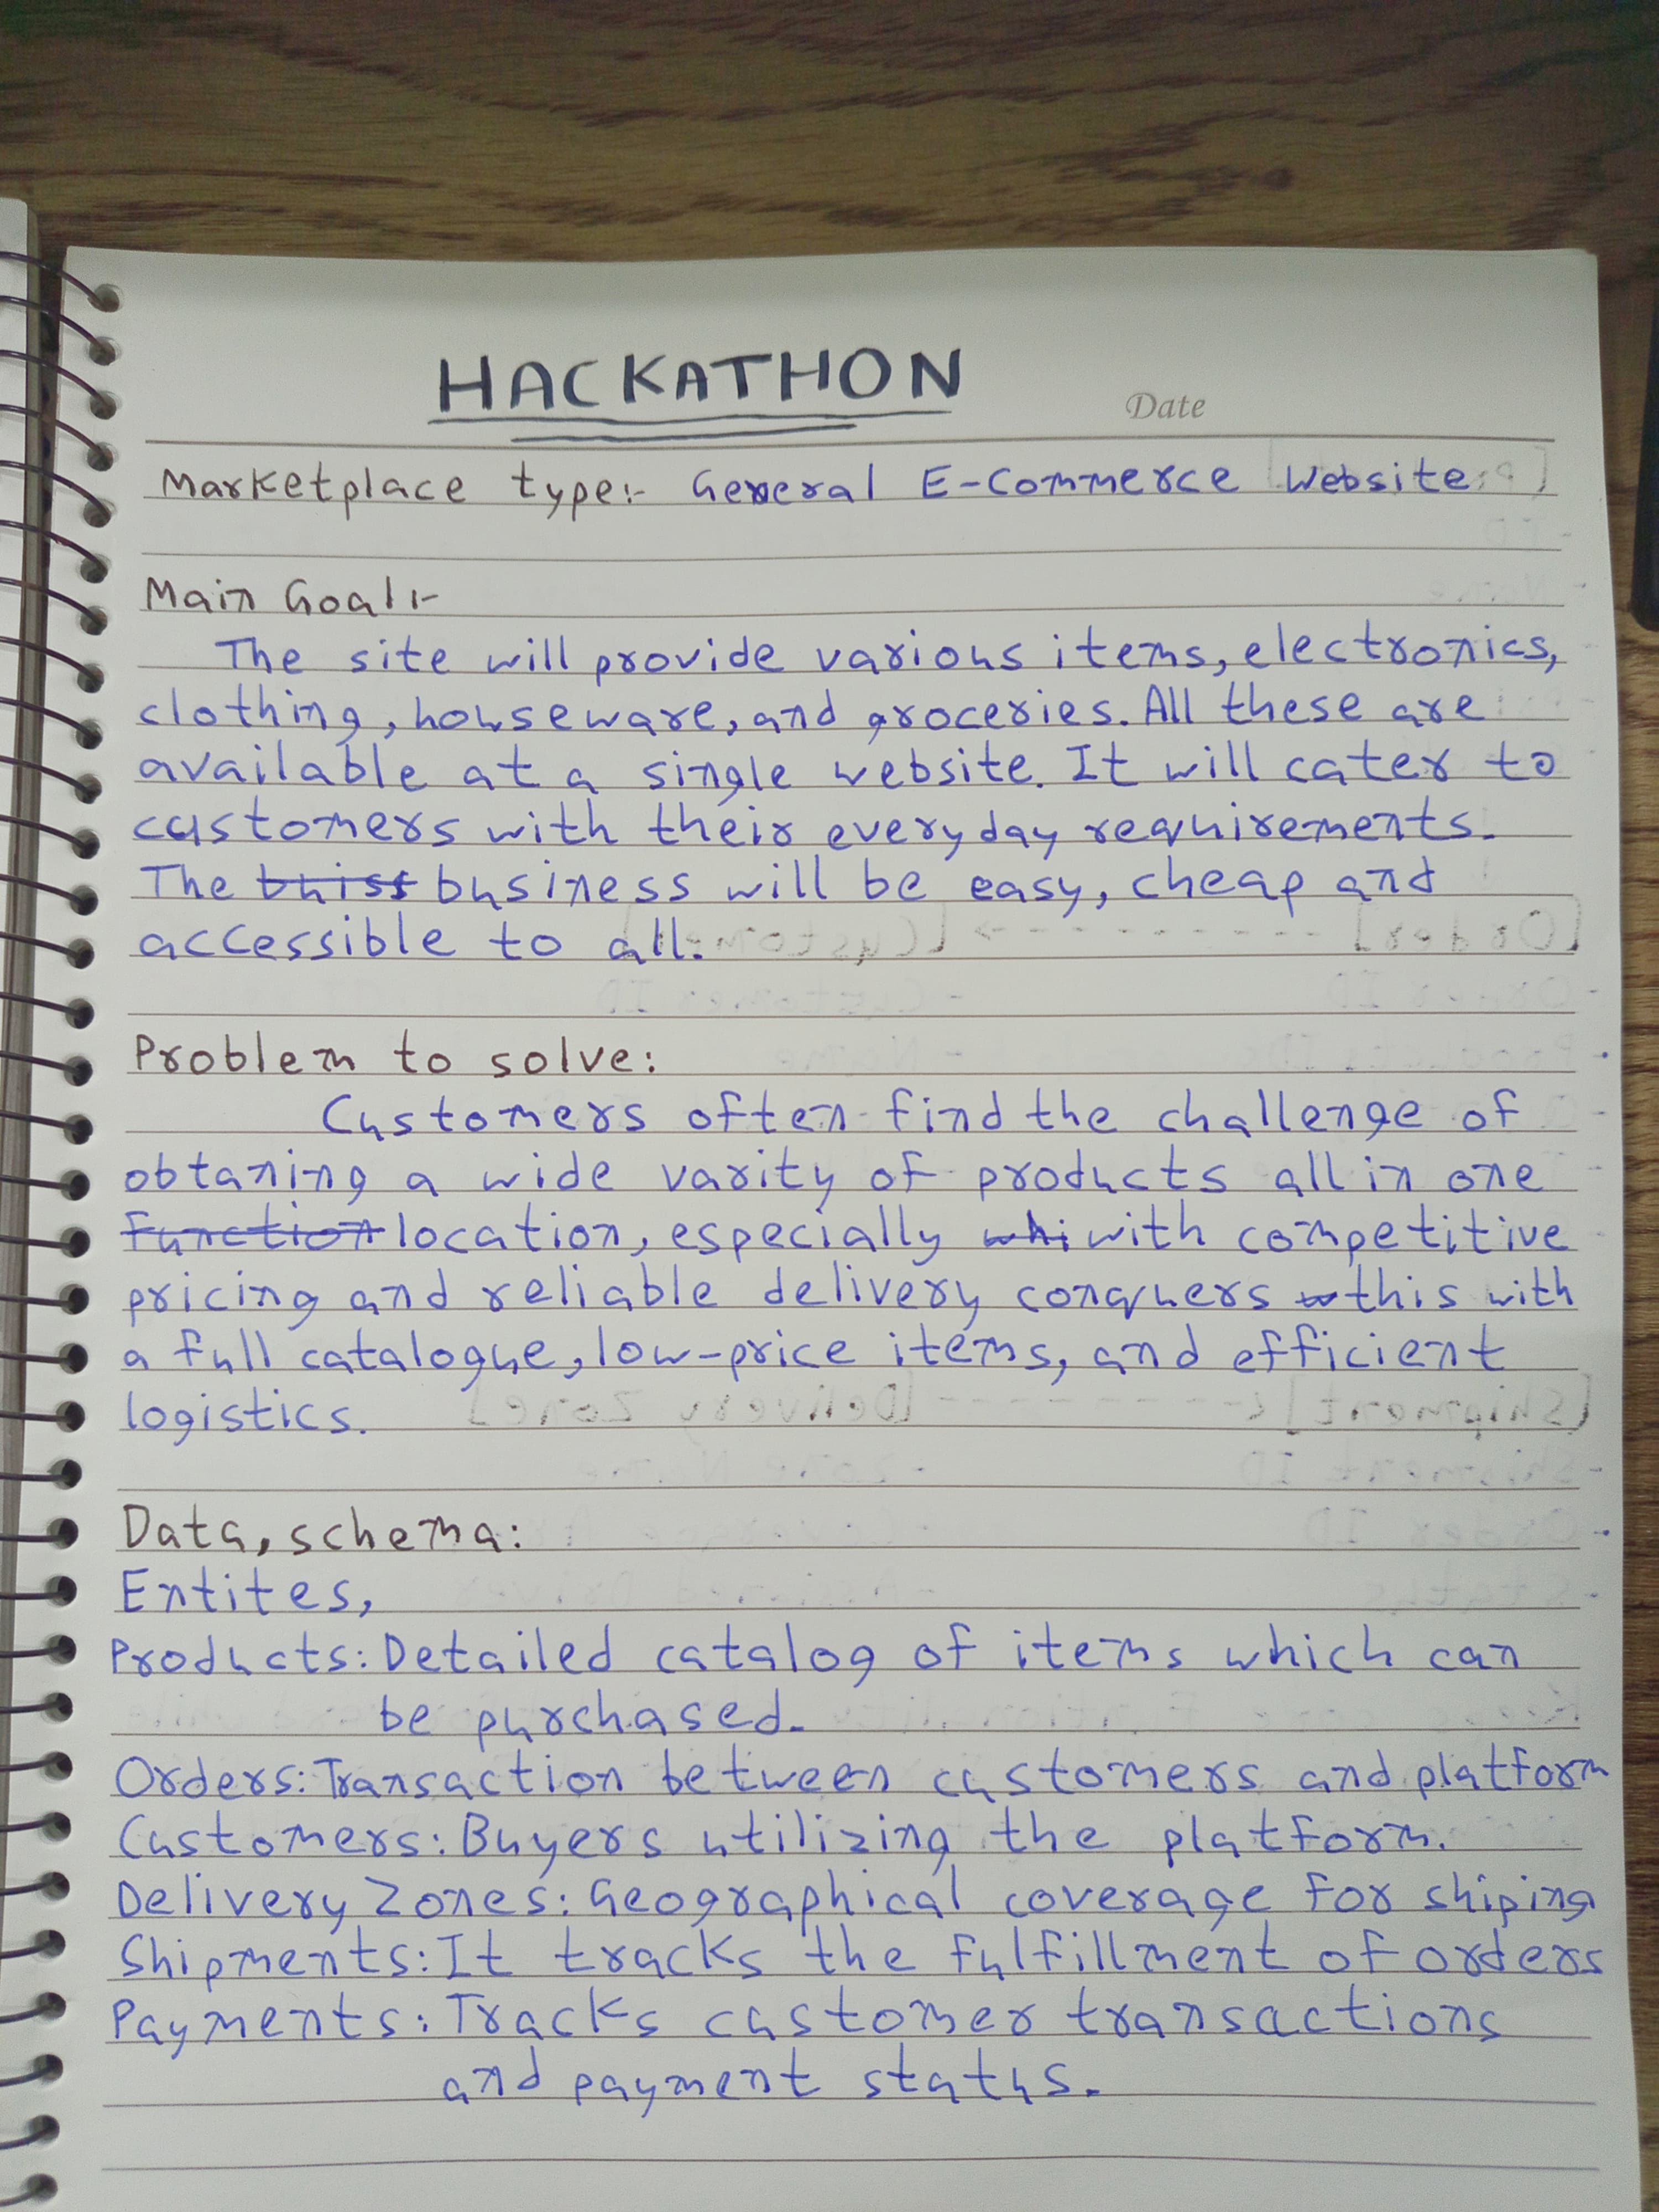 HACKATHON
Date
Marketplace type:- General E-Commerce Website
Main Goal:-
The site will provide various items, electronics,
clothing, houseware, and groceries. All these are
available at a single website. It will cater to
customers with their everyday requirements.
The buiss business will be easy, cheap and
accessible to all.
Problem to solve:
Customers often find the challenge of
obtaning a wide varity of products all in one
function location, especially whi with competitive
pricing and reliable delivery conquers this with
a full catalogue, low-price items, and efficient
logistics.
Data, schema:
Entites,
Products: Detailed catalog of items which can
be purchased.
Orders: Transaction between customers and platform
Customers: Buyers utilizing the platform.
Delivery Zones: Geographical coverage for shiping.
Shipments: It tracks the fulfillment of orders
Payments: Tracks customer transactions
and payment status.